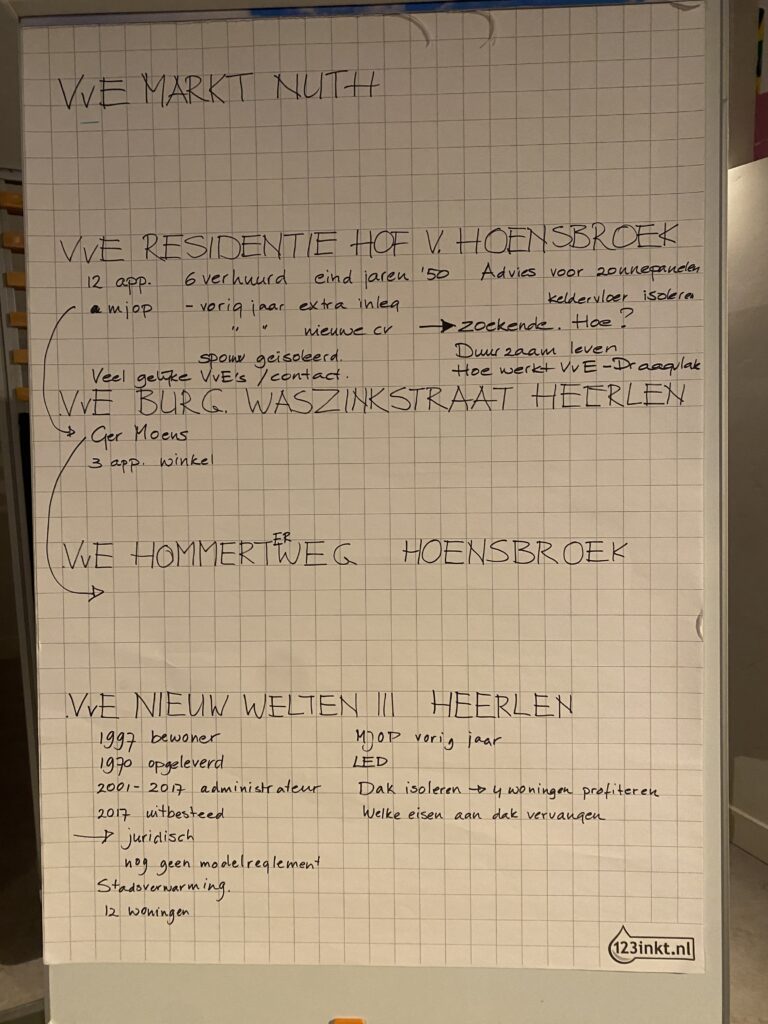 VvE MARKT NUTH
VvE RESIDENTIE HOF V. HOENSBROEK
12 app. 6 verhuurd eind jaren '50 Advies voor zonnepanelen
mjop - vorig jaar extra inleg keldervloer isoleren
" " nieuwe cv → zoekende. Hoe?
spouw geisoleerd. Duurzaam leven
Veel gelijke VvE's / contact. Hoe werkt VvE - Draagvlak
VvE BURG. WASZINKSTRAAT HEERLEN
Ger Moens
3 app. winkel
VvE HOMMERTERWEG HOENSBROEK
VvE NIEUW WELTEN III HEERLEN
1997 bewoner MJOP vorig jaar
1970 opgeleverd LED
2001-2017 administrateur Dak isoleren → 4 woningen profiteren
2017 uitbesteed Welke eisen aan dak vervangen
→ juridisch
nog geen modelreglement
Stadsverwarming.
12 woningen
123inkt.nl